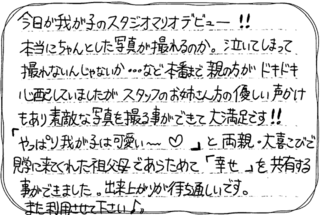 今日が我が子のスタジオマリオデビュー!!
本当にちゃんとした写真が撮れるのか。泣いてしまって
撮れないんじゃないか…など本番まで親の方がドキドキ
心配していましたがスタッフのお姉さん方の優しい声かけ
もあり素敵な写真を撮る事ができて大満足です!!
「やっぱり我が子は可愛い〜♡」と両親・大喜びで
見に来てくれた祖父母であらためて「幸せ」を共有する
事ができました。出来上がりが待ち遠しいです。
また利用させて下さい♪